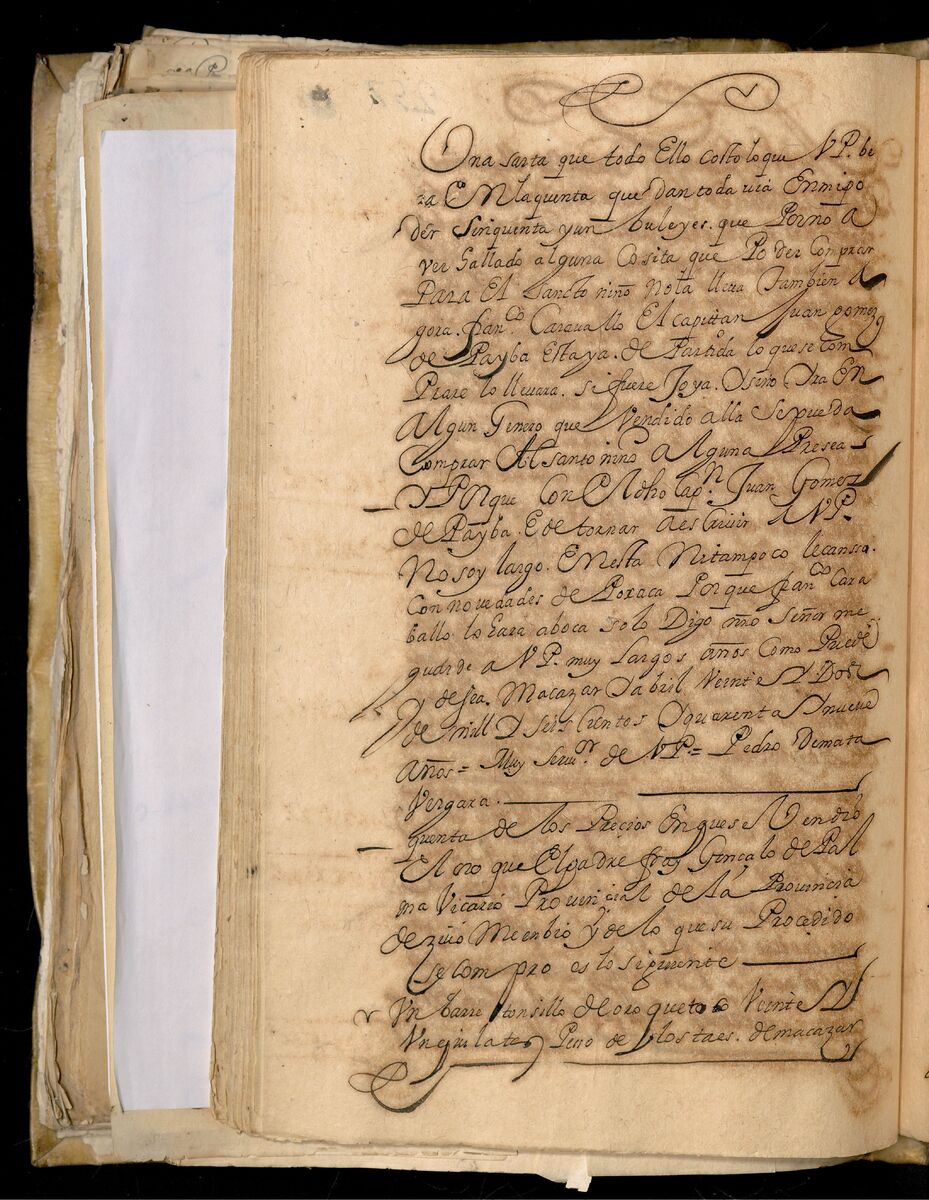 Una sarta que todo Ello costo lo que V P. be
ra En la quenta que dan toda via En mi po
der sinquenta y un buleyes. que Por no a
ver hallado alguna Cosita que Poder Comprar
Para El Sancto niño no la lleva Tambien A
gora. fran.co Caravallo El capittan Juan gomez
de Payba Esta ya. de Partida lo que se com
Prare lo llevara. si fuere Joya. O sino Ora En
Algun Genero que Vendido alla se pueda
Comprar Al santo niño alguna Presea
Y Porque Con El dho Cap.n Juan Gomez
de Payba. E de tornar a escrivir a V P.
No soy largo. En esta Ni tampoco le canso.
Con novedades de Porque fran.co Cara
ballo lo hara a boca solo Digo nro Señor me
guarde a V P. muy Largos años Como Puede
y desea. Macazar Y abril Veinte Y Dos
de mill Y seis Cientos Y quarenta Y nueve
Años = Muy Servi.or de V P = Pedro Demata
Vergara.
quenta de los Precios En que se Vendio
El oro que El padre fray Gonçalo de Pal
ma Vicario Provincial de la Provincia
de me enbio y de lo que su Procedido
se compro es lo siguiente
Un barretonsillo de oro que toco Veinte Y
Un quilates Peso de los taes. de macazar